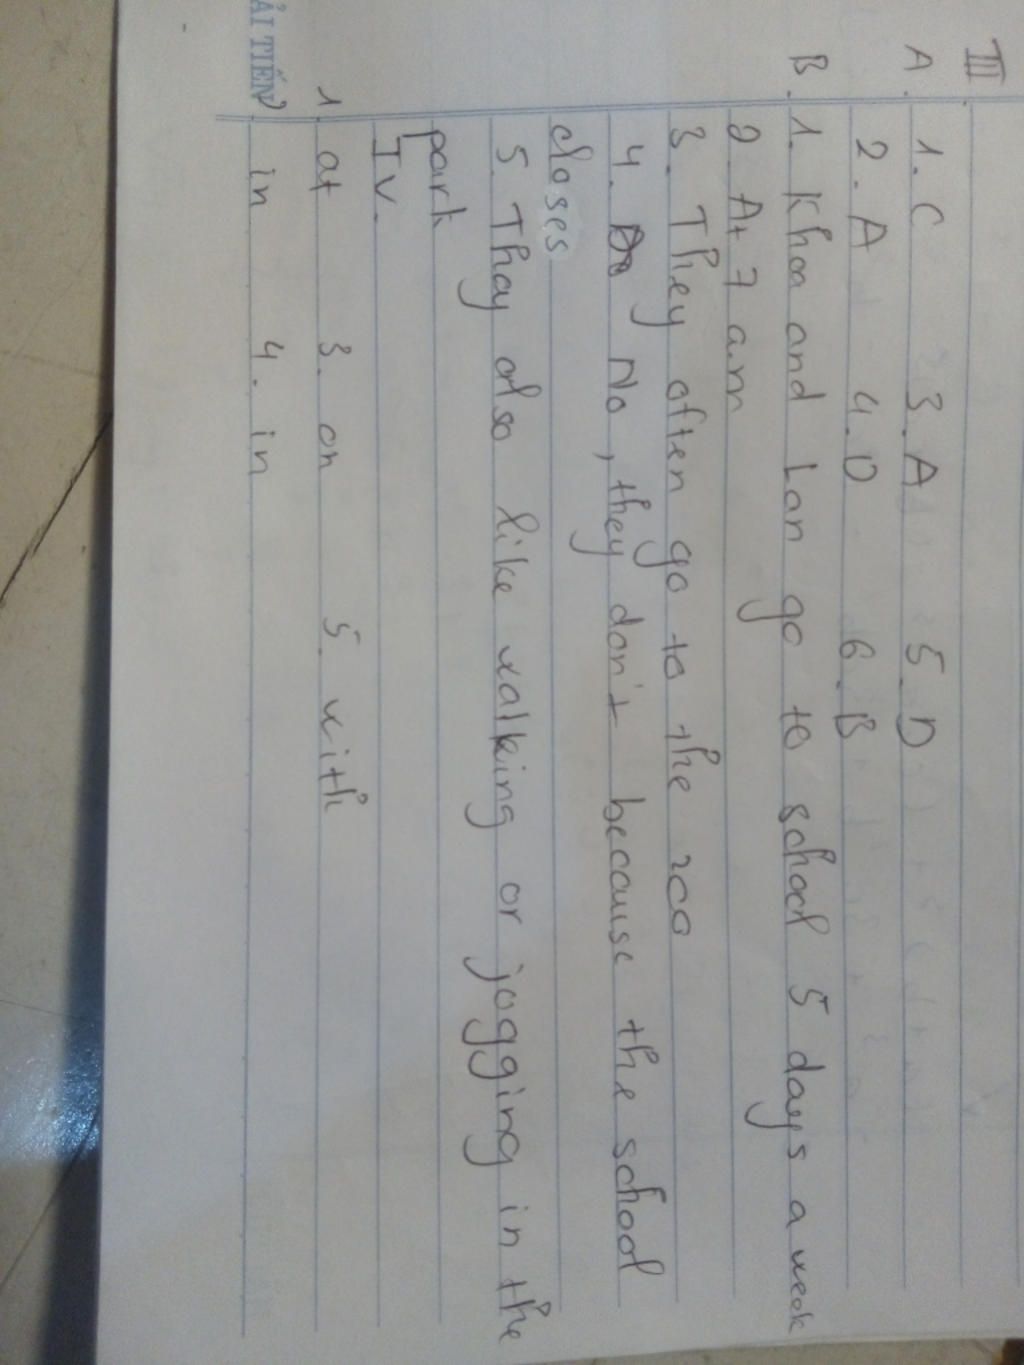 III.
A. 1. C 3. A 5. D
2. A 4. D 6. B
B. 1. Khoa and Lan go to school 5 days a week
2. At 7 a.m
3. They often go to the zoo
4. No, they don't because the school
closes
5. They also like walking or jogging in the
park
IV.
1. at 3. on 5. with
in 4. in
ẢI TIẾN